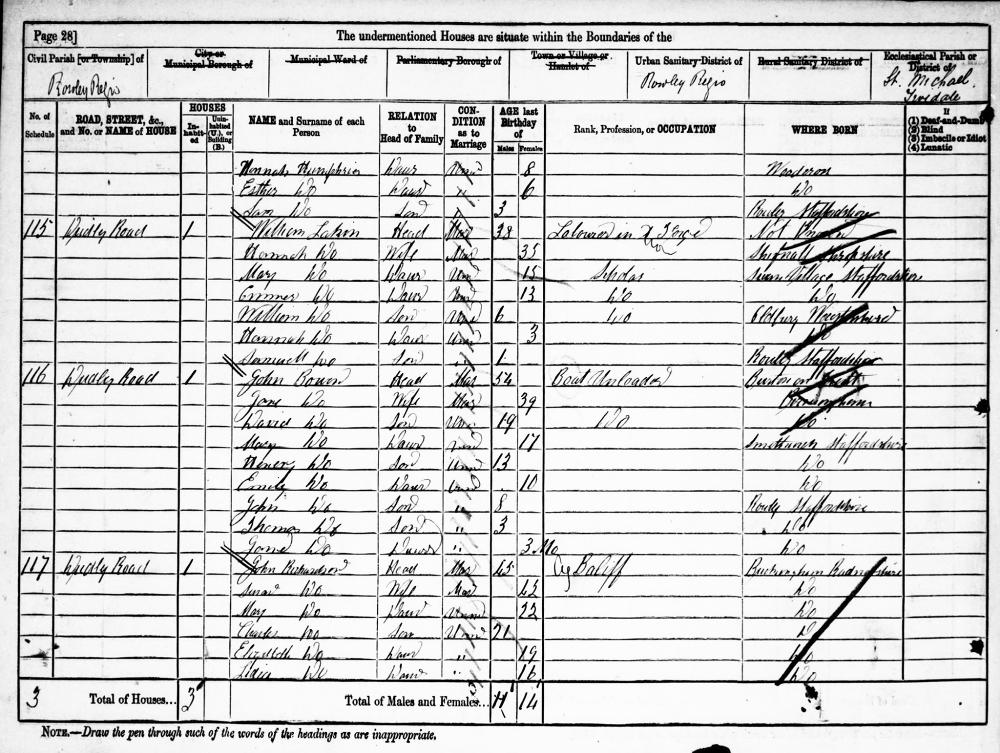 Page 28]
The undermentioned Houses are situate within the Boundaries of the
Civil Parish [or Township] of
City or Municipal Borough of
Municipal Ward of
Parliamentary Borough of
Town or Village or Hamlet of
Urban Sanitary District of
Rural Sanitary District of
Ecclesiastical Parish or District of
Rowley Regis
Rowley Regis
St. Michael
Tividale
No. of Schedule
ROAD, STREET, &c., and No. or NAME of HOUSE
HOUSES
Inhabited
Uninhabited (U.), or Building (B.)
NAME and Surname of each Person
RELATION to Head of Family
CONDITION as to Marriage
AGE last Birthday of
Males
Females
Rank, Profession, or OCCUPATION
WHERE BORN
If
(1) Deaf-and-Dumb
(2) Blind
(3) Imbecile or Idiot
(4) Lunatic
Hannah Humphries Daur 8
Esther Do Daur " 6 Do
Sam Do Son 3 Rowley Staffordshire
115 Dudley Road 1 William Lakin Head Mar 38 Labourer in Iron Forge Not Known
Hannah Do Wife Mar 35
Mary Do Daur Unm 15 Scholar Swan Village Staffordshire
Do Daur Unm 13 Do Do
William Do Son Unm 6 Do Oldbury
Hannah Do Daur Unm 3 Do
Samuell Do Son 1 Rowley Staffordshire
116 Dudley Road 1 John Bowen Head Mar 54 Boat Unloader Burton on Trent
Jane Do Wife Mar 39 Birmingham
David Do Son Unm 19 Do Do
Mary Do Daur Unm 17 Smethwick Staffordshire
Henery Do Son Unm 13 Do
Emily Do Daur Unm 10 Do
John Do Son " 8 Rowley Staffordshire
Thomas Do Son " 3 Do
Do Daur " 3 Mo Do
117 Dudley Road 1 John Richardson Head Mar 45 Ag Baliff
Susan Do Wife Mar 42 Do
Mary Do Daur Unm 22 Do
Charles Do Son Unm 21 D
Elizabeth Do Daur " 19 Do
Do Daur " 16 Do
3 Total of Houses... 3 Total of Males and Females... 11 14
NOTE.—Draw the pen through such of the words of the headings as are inappropriate.